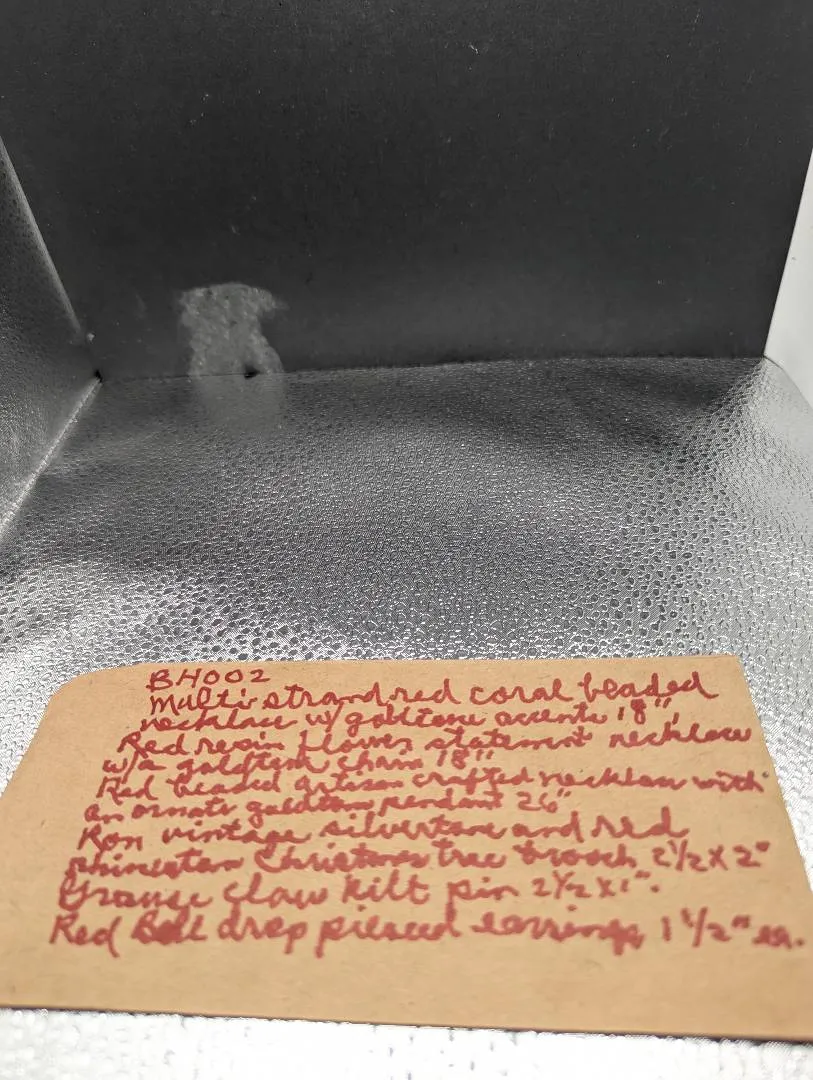 BH002
Multi strand red coral beaded
necklace w/ goldtone accents 18",
Red resin flower statement necklace
w/a goldtone chain 18"
Red beaded artisan crafted necklace with
an ornate goldtone pendant 26"
Ron vintage silvertone and red
rhinestone Christmas tree brooch 2 1/2 x 2"
Grouse claw kilt pin 2 1/2 x 1".
Red Ball drop pierced earrings 1 1/2" ea.